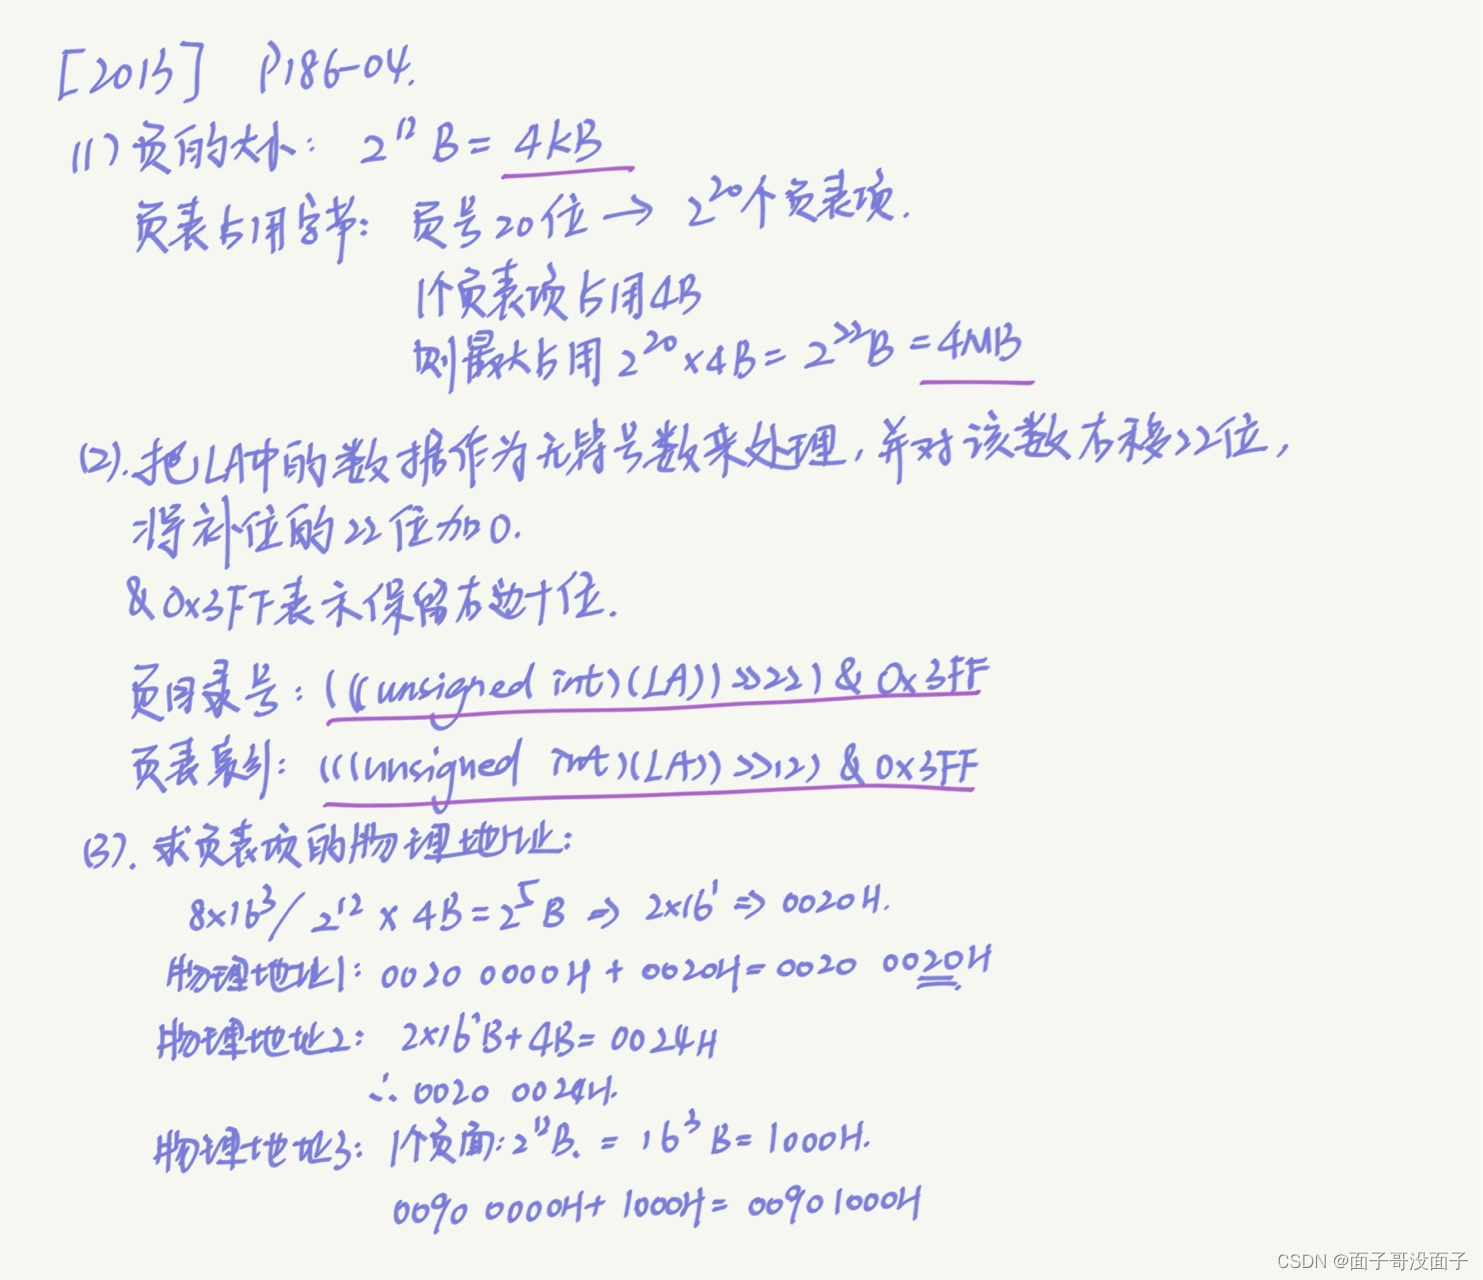 [2013] P186-04.
(1) 页的大小: 2¹² B = 4KB
页表占用字节: 页号20位 → 2²⁰个页表项.
1个页表项占用4B
则最大占用 2²⁰×4B = 2²²B = 4MB
(2). 把LA中的数据作为无符号数来处理, 并对该数右移22位,
将补位的22位加0.
& 0x3FF表示保留右边十位.
页目录号: (((unsigned int)(LA))>>22) & 0x3FF
页表索引: (((unsigned int)(LA))>>12) & 0x3FF
(3). 求页表项的物理地址:
8×16³/2¹² × 4B = 2⁵B ⇒ 2×16¹ ⇒ 0020H.
物理地址1: 0020 0000H + 0020H = 0020 0020H.
物理地址2: 2×16¹B + 4B = 0024H
∴ 0020 0024H.
物理地址3: 1个页面: 2¹²B. = 16³B = 1000H.
0090 0000H + 1000H = 0090 1000H
CSDN @面子哥没面子